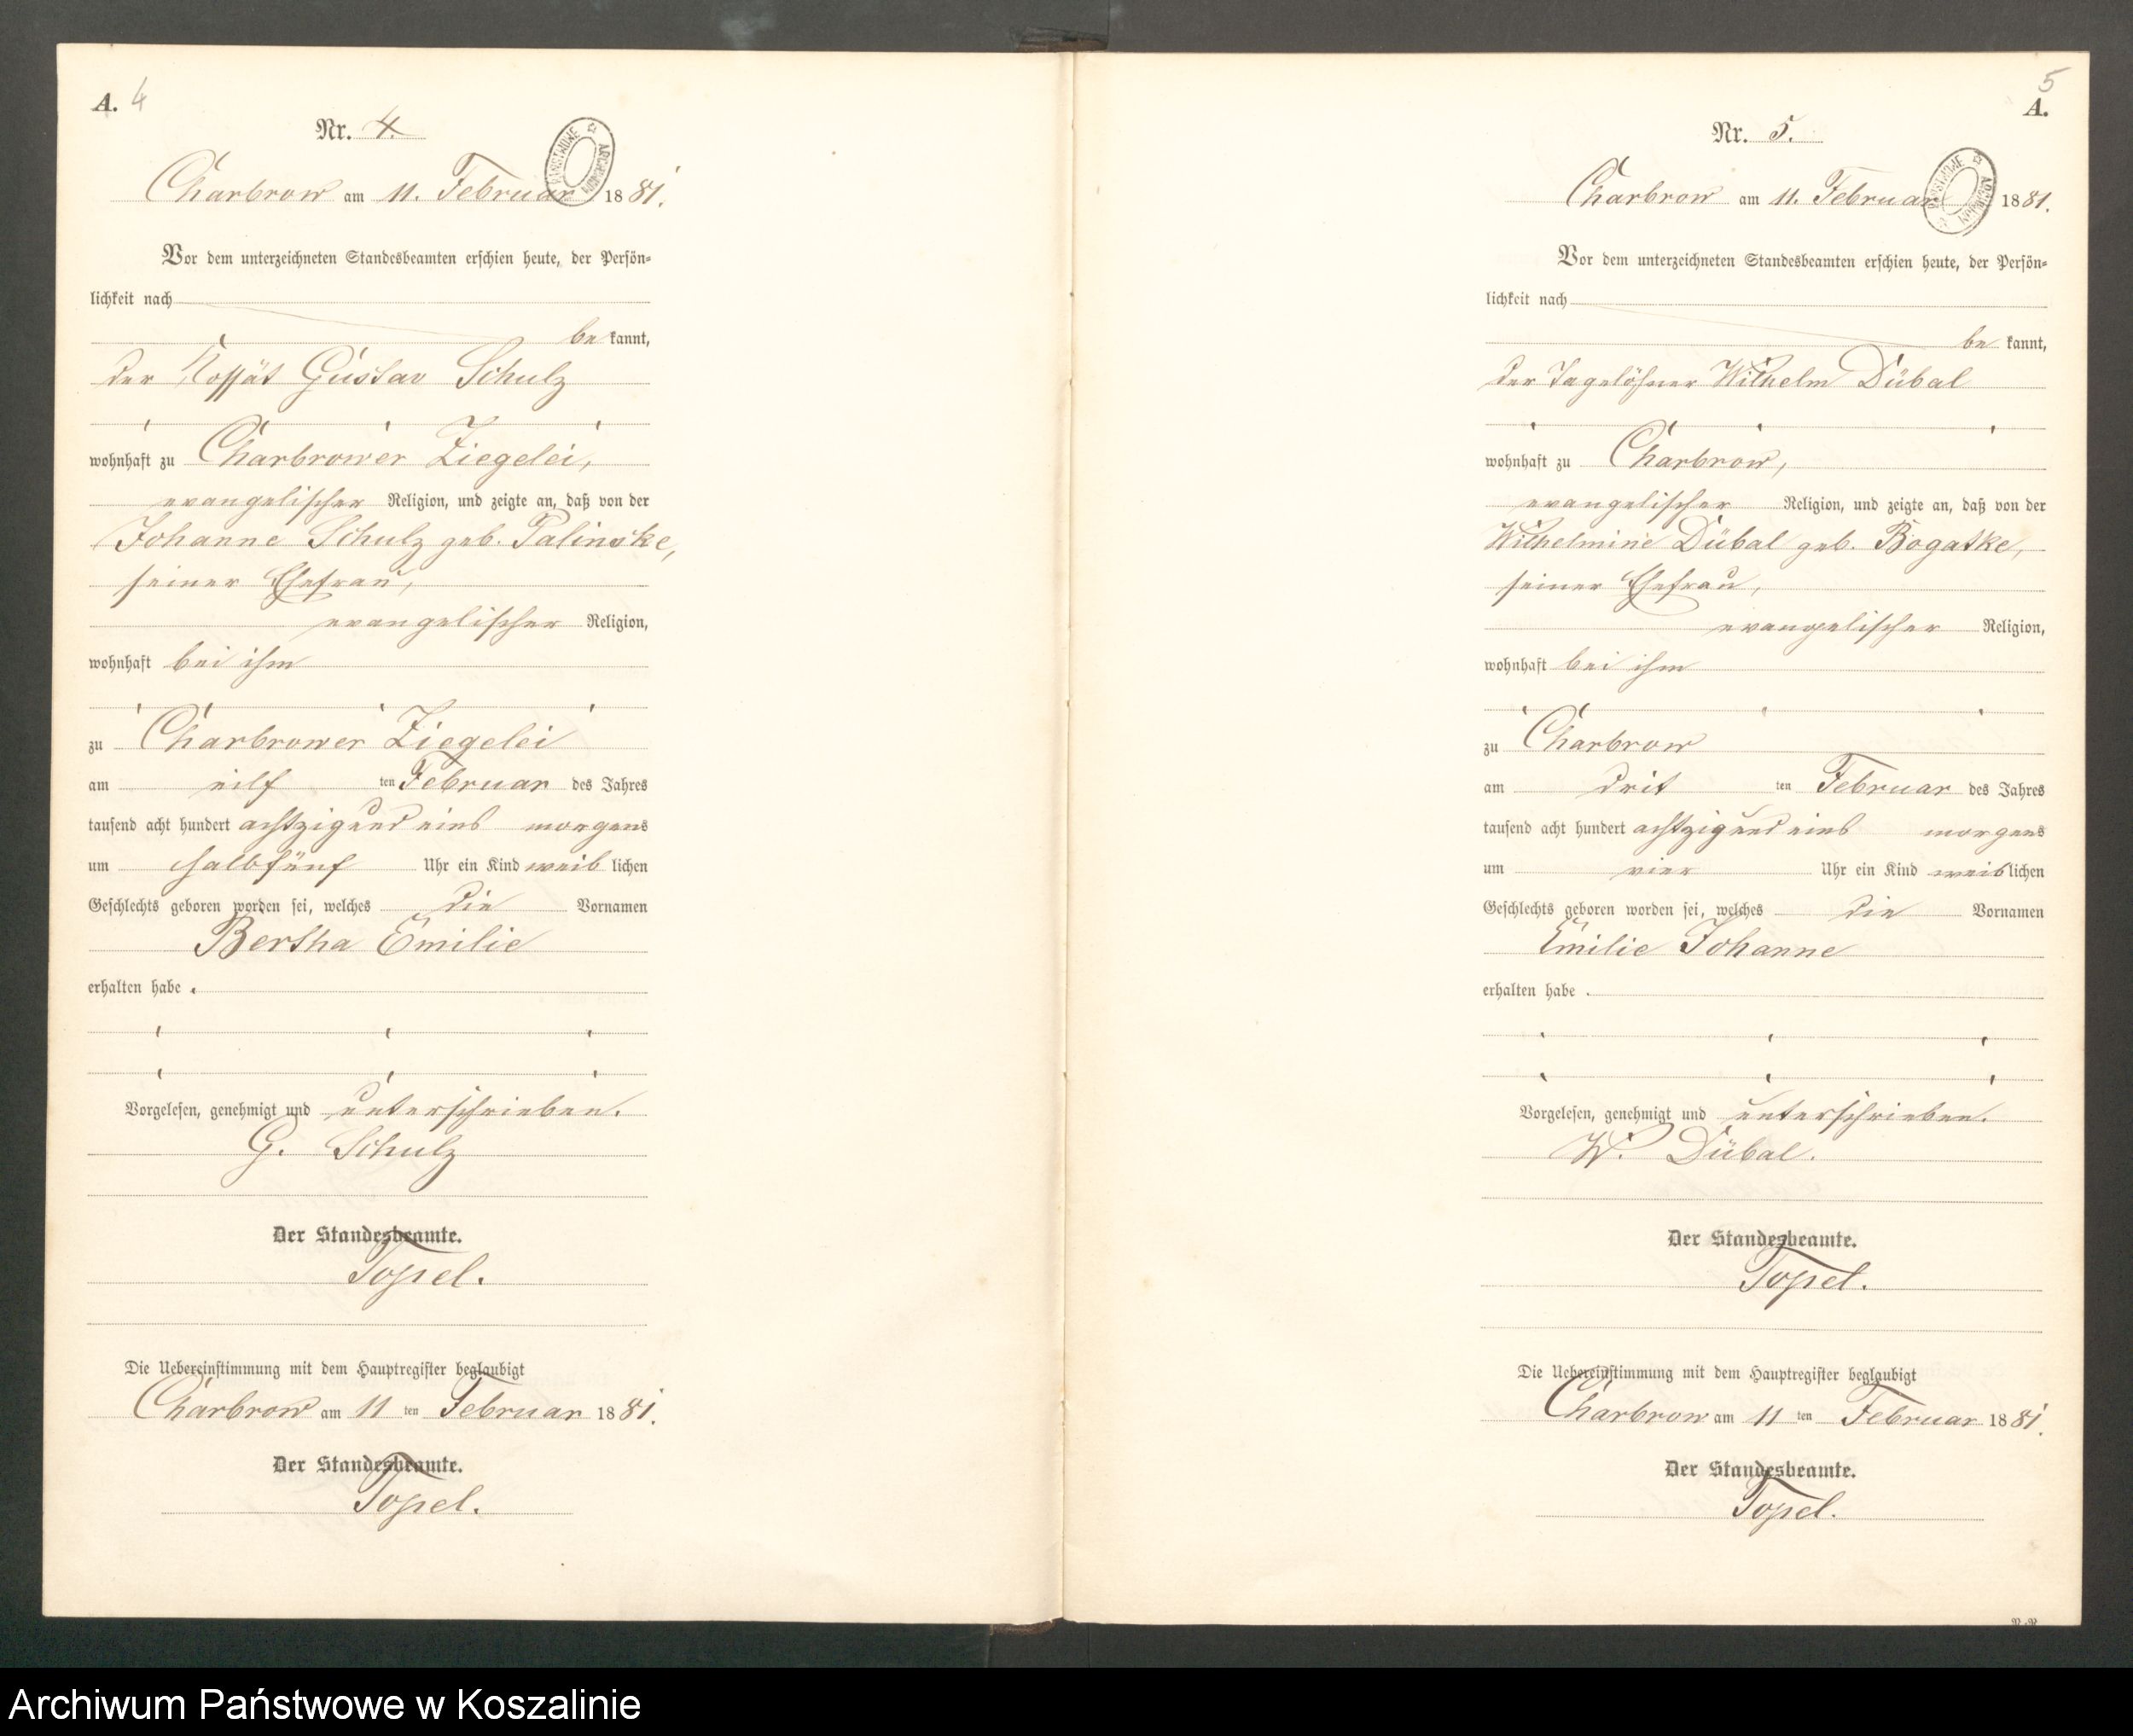 A. 4
Nr. 4.
Charbrow am 11. Februar 1881.
Vor dem unterzeichneten Standesbeamten erschien heute, der Persön-
lichkeit nach
be kannt,
der Kossät Gustav Schulz
wohnhaft zu Charbrower Ziegelei,
evangelischer Religion, und zeigte an, daß von der
Johanne Schulz geb. Palinske,
seiner Ehefrau,
evangelischer Religion,
wohnhaft bei ihm
zu Charbrower Ziegelei
am eilf ten Februar des Jahres
tausend acht hundert achtzig und eins morgens
um halbfünf Uhr ein Kind weib lichen
Geschlechts geboren worden sei, welches die Vornamen
Bertha Emilie
erhalten habe.
Vorgelesen, genehmigt und unterschrieben.
G. Schulz
Der Standesbeamte.
Topel.
Die Uebereinstimmung mit dem Hauptregister beglaubigt
Charbrow am 11 ten Februar 1881.
Der Standesbeamte.
Topel.
5
A.
Nr. 5.
Charbrow am 11. Februar 1881.
Vor dem unterzeichneten Standesbeamten erschien heute, der Persön-
lichkeit nach
be kannt,
der Tagelöhner Wilhelm Dübal
wohnhaft zu Charbrow,
evangelischer Religion, und zeigte an, daß von der
Wilhelmine Dübal geb. Bogatke,
seiner Ehefrau,
evangelischer Religion,
wohnhaft bei ihm
zu Charbrow
am drit ten Februar des Jahres
tausend acht hundert achtzig und eins morgens
um vier Uhr ein Kind weib lichen
Geschlechts geboren worden sei, welches die Vornamen
Emilie Johanne
erhalten habe.
Vorgelesen, genehmigt und unterschrieben.
W. Dübal.
Der Standesbeamte.
Topel.
Die Uebereinstimmung mit dem Hauptregister beglaubigt
Charbrow am 11 ten Februar 1881.
Der Standesbeamte.
Topel.
Archiwum Państwowe w Koszalinie